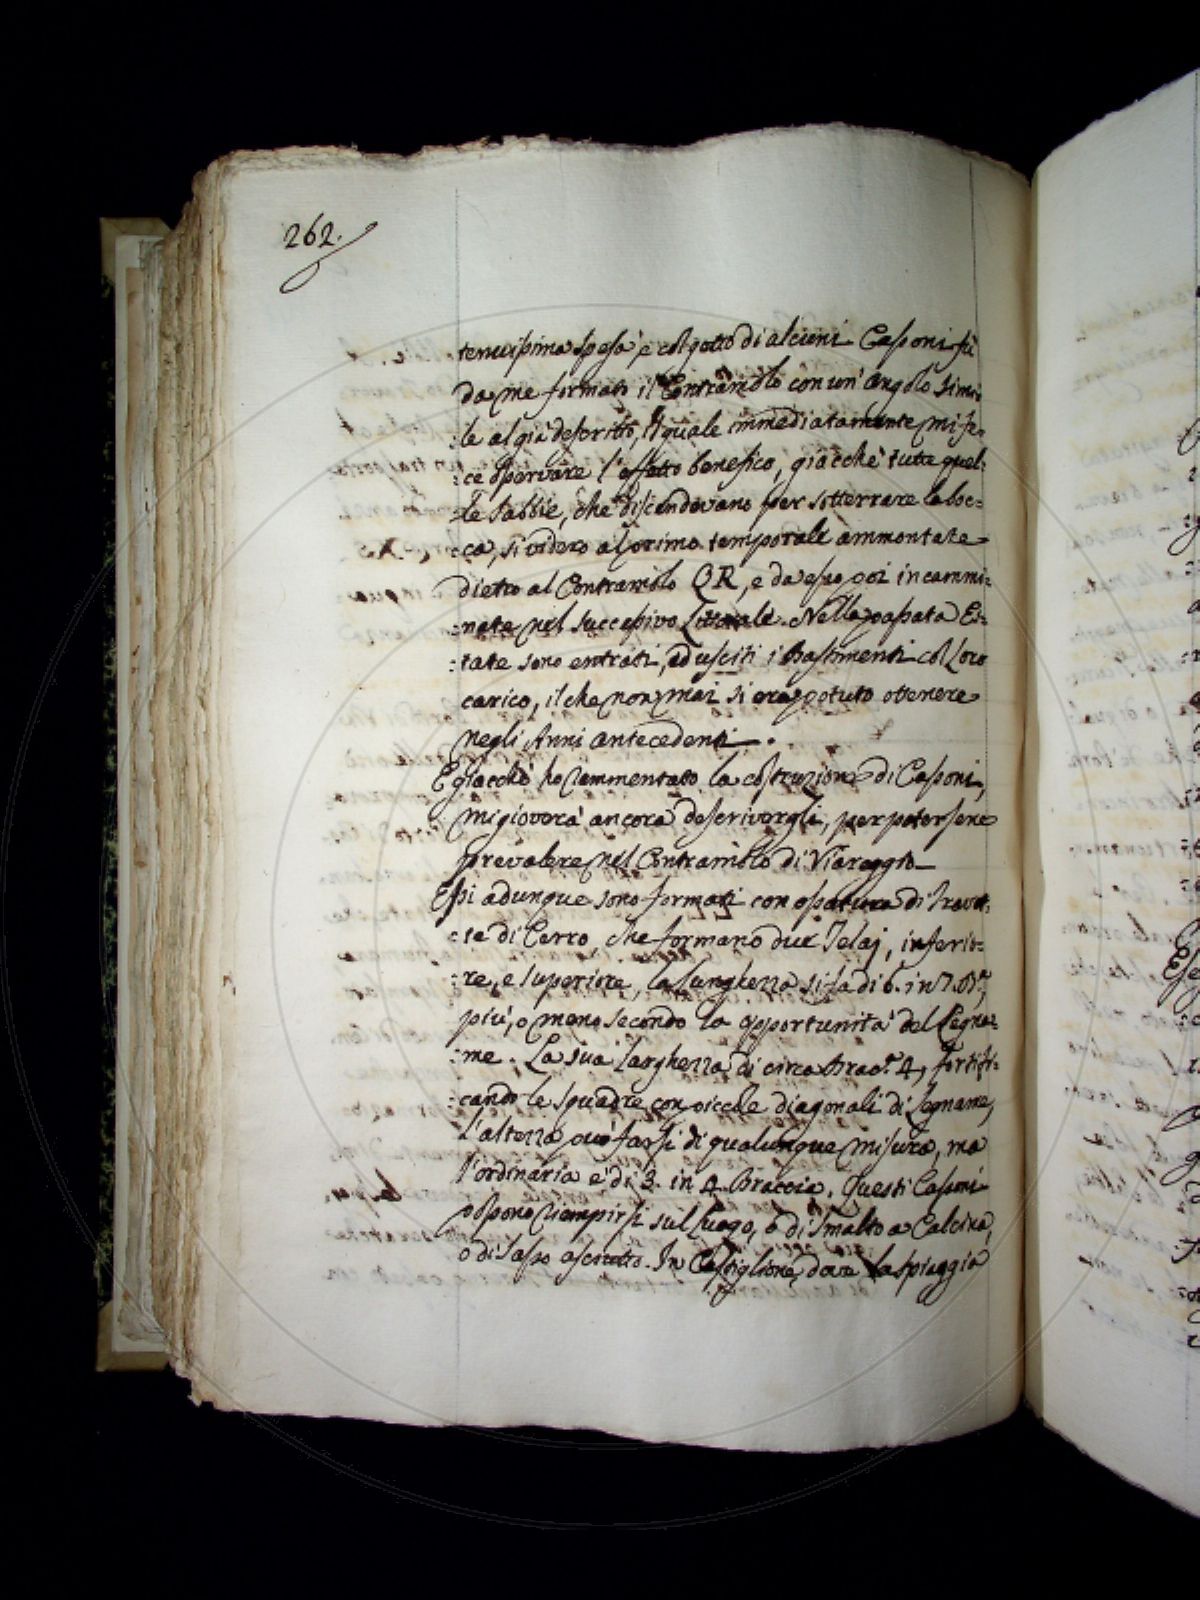 262.
tenuissima spesa, e col getto di alcuni Cassoni fù
da me formato il Contramolo con un' Angolo simi=
:le al già descritto, il quale immediatamente mi fe=
:ce osservare l'effetto benefico, giacchè tutte quel=
:le sabbie, che discendevano per sotterrare la boc=
:ca, si videro al primo temporale ammontate
dietro al Contramolo QR, e da esso poi incammi=
:nate nel successivo Littorale. Nella passata Es=
:tate sono entrati, ed usciti i Bastimenti col Loro
carico, il che non mai si era potuto ottenere
negli Anni antecedenti.
E giacchè ho rammentato la costruzione di Cassoni,
mi gioverà ancora descrivergli, per potersene
prevalere nel Contramolo di Viareggio
Essi adunque sono formati con ossatura di Travet=
:te di Cerro, che formano due Telaj, inferio=
:re, e superiore, la lunghezza si fà di 6. in 7. Br.ª,
più, o meno secondo la opportunità del Legna=
:me. La sua larghezza di circa Brac.ª 4, fortifi=
:cando le squadre con piccole diagonali di Legname,
L'altezza può farsi di qualunque misura, ma
l'ordinaria è di 3. in 4. Braccia. Questi Cassoni
possono riempirsi sul luogo, o di smalto a Calcina,
o di Sasso asciutto. In Castiglione, dove la spiaggia